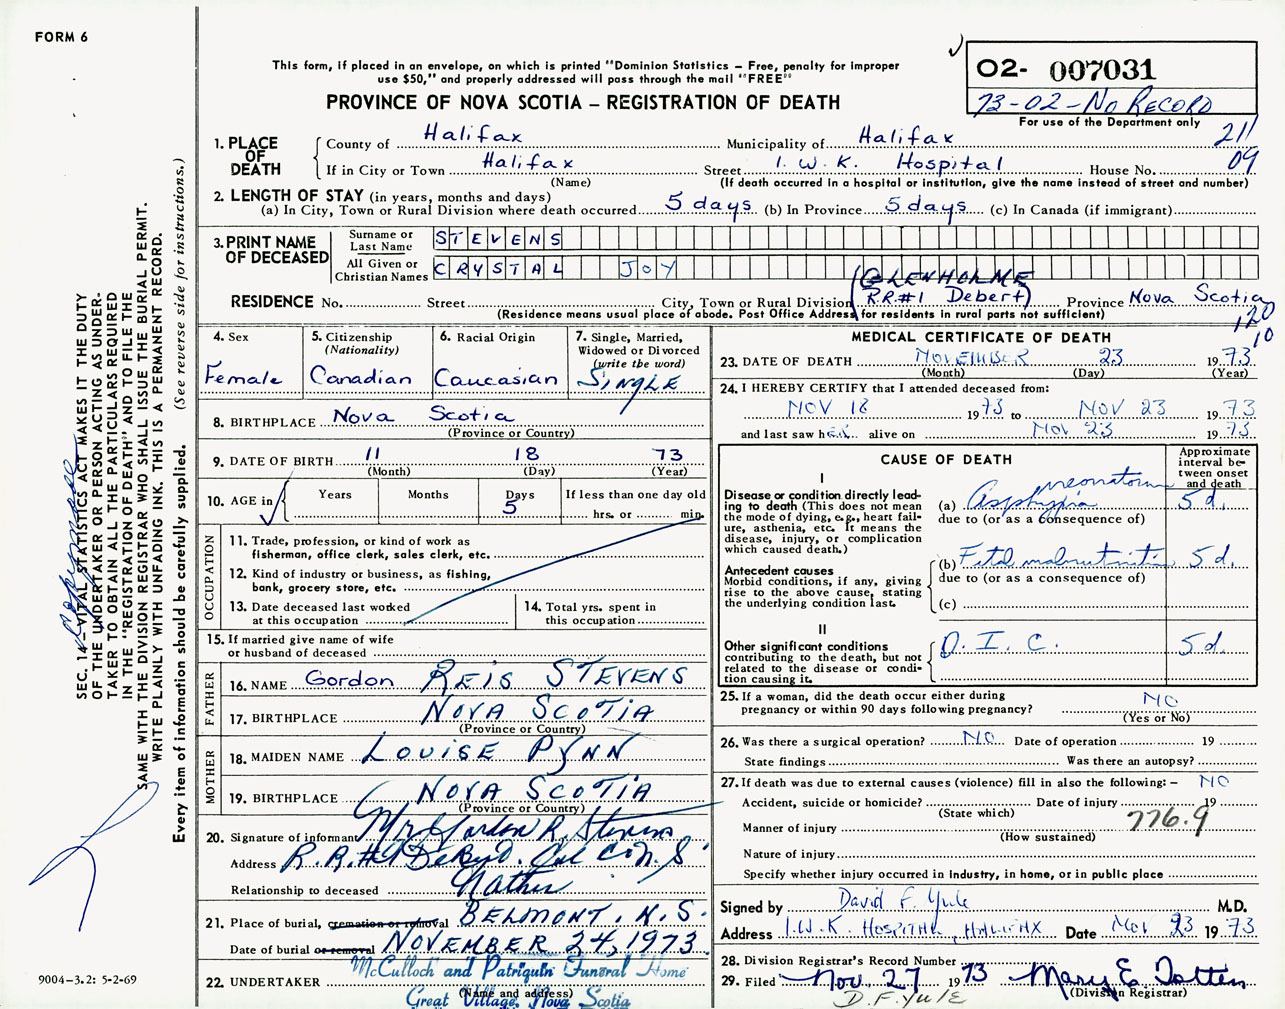 FORM 6
This form, if placed in an envelope, on which is printed "Dominion Statistics – Free, penalty for improper
use $50," and properly addressed will pass through the mail "FREE"
PROVINCE OF NOVA SCOTIA – REGISTRATION OF DEATH
02- 007031
73-02-No RECORD
For use of the Department only
211
09
1. PLACE OF DEATH
County of Halifax Municipality of Halifax
If in City or Town Halifax Street I. W. K. Hospital House No.
(Name) (If death occurred in a hospital or institution, give the name instead of street and number)
2. LENGTH OF STAY (in years, months and days)
(a) In City, Town or Rural Division where death occurred 5 days (b) In Province 5 days (c) In Canada (if immigrant)
3. PRINT NAME OF DECEASED
Surname or Last Name STEVENS
All Given or Christian Names CRYSTAL JOY
GLENHOLME
RESIDENCE No. Street City, Town or Rural Division (R.R.#1 Debert) Province Nova Scotia
(Residence means usual place of abode. Post Office Address for residents in rural parts not sufficient)
120
10
4. Sex
Female
5. Citizenship
(Nationality)
Canadian
6. Racial Origin
Caucasian
7. Single, Married,
Widowed or Divorced
(write the word)
SINGLE
8. BIRTHPLACE Nova Scotia
(Province or Country)
9. DATE OF BIRTH 11 18 73
(Month) (Day) (Year)
10. AGE in
Years Months Days If less than one day old
5 hrs. or min.
OCCUPATION
11. Trade, profession, or kind of work as
fisherman, office clerk, sales clerk, etc.
12. Kind of industry or business, as fishing,
bank, grocery store, etc.
13. Date deceased last worked
at this occupation
14. Total yrs. spent in
this occupation
15. If married give name of wife
or husband of deceased
FATHER
16. NAME Gordon REIS STEVENS
17. BIRTHPLACE NOVA SCOTIA
(Province or Country)
MOTHER
18. MAIDEN NAME LOUISE PYNN
19. BIRTHPLACE NOVA SCOTIA
(Province or Country)
20. Signature of informant Mr. Gordon R. Stevens
Address R.R.#1 Col Co N.S.
Relationship to deceased
21. Place of burial, cremation or removal BELMONT. N.S.
Date of burial or removal NOVEMBER 24, 1973
22. UNDERTAKER McCulloch and Patriquin Funeral Home
(Name and address)
Great Village, Nova Scotia
MEDICAL CERTIFICATE OF DEATH
23. DATE OF DEATH NOVEMBER 23 1973
(Month) (Day) (Year)
24. I HEREBY CERTIFY that I attended deceased from:
NOV 18 1973 to NOV 23 1973
and last saw her alive on NOV 23 1973
CAUSE OF DEATH
Approximate
interval be-
tween onset
and death
I
Disease or condition directly lead-
ing to death (This does not
mean the mode of dying, e.g., heart fail-
ure, asthenia, etc. It means the
disease, injury, or complication
which caused death.)
(a) Asphyxia neonatorum 5 d.
due to (or as a consequence of)
Antecedent causes
Morbid conditions, if any, giving
rise to the above cause, stating
the underlying condition last.
(b) Fetal malnutrition 5 d.
due to (or as a consequence of)
(c)
II
Other significant conditions
contributing to the death, but not
related to the disease or condi-
tion causing it.
D. I. C. 5 d.
25. If a woman, did the death occur either during
pregnancy or within 90 days following pregnancy? NO
(Yes or No)
26. Was there a surgical operation? NO Date of operation 19
State findings Was there an autopsy?
27. If death was due to external causes (violence) fill in also the following:– NO
Accident, suicide or homicide? Date of injury 19
(State which)
Manner of injury 776.9
(How sustained)
Nature of injury
Specify whether injury occurred in industry, in home, or in public place
Signed by David F. Yule M.D.
Address I.W.K. HOSPITAL, HALIFAX Date Nov 23 1973
28. Division Registrar's Record Number
29. Filed Nov. 27 1973 Mary E. Totten
(Division Registrar)
D.F. YULE
SEC. 14 – VITAL STATISTICS ACT MAKES IT THE DUTY
OF THE UNDERTAKER OR PERSON ACTING AS UNDER-
TAKER TO OBTAIN ALL THE PARTICULARS REQUIRED
IN THE "REGISTRATION OF DEATH" AND TO FILE THE
SAME WITH THE DIVISION REGISTRAR WHO SHALL ISSUE THE BURIAL PERMIT.
WRITE PLAINLY WITH UNFADING INK. THIS IS A PERMANENT RECORD.
Every item of information should be carefully supplied. (See reverse side for instructions.)
9004-3.2: 5-2-69